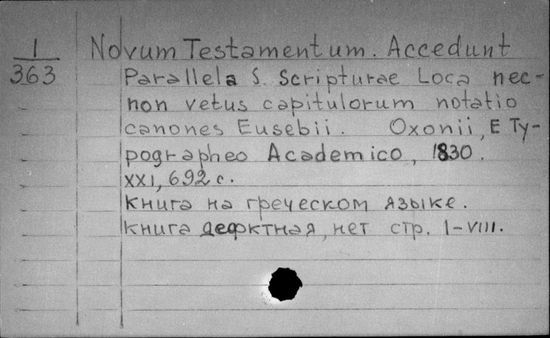 1
363
Novum Testamentum. Accedunt
Parallela S. Scripturae Loca nec-
non vetus capitulorum notatio
canones Eusebii. Oxonii, E Ty-
pographeo Academico, 1830.
XXI, 692 с.
Книга на греческом языке.
Книга дефктная, нет стр. I-VIII.